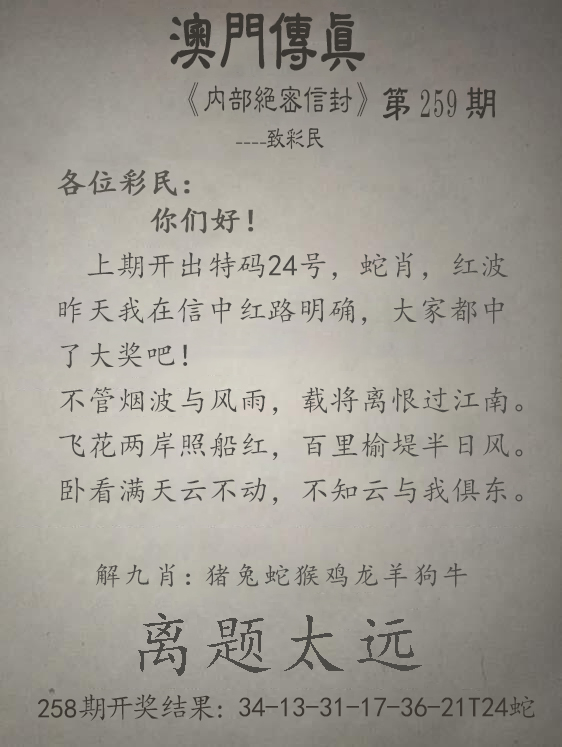 澳門傳眞
《內部絕密信封》第259期
----致彩民
各位彩民：
你们好！
上期开出特码24号，蛇肖，红波
昨天我在信中红路明确，大家都中
了大奖吧！
不管烟波与风雨，载将离恨过江南。
飞花两岸照船红，百里榆堤半日风。
卧看满天云不动，不知云与我俱东。
解九肖：猪兔蛇猴鸡龙羊狗牛
离题太远
258期开奖结果：34-13-31-17-36-21T24蛇